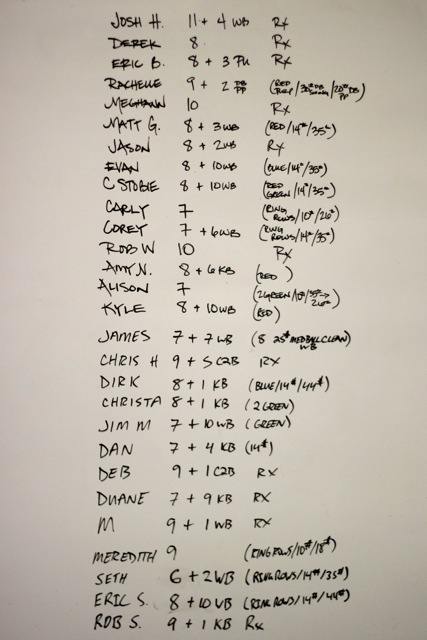 JOSH H. 11 + 4 WB Rx
DEREK 8 Rx
ERIC B. 8 + 3 PU Rx
RACHELLE 9 + 2 DB PP (RED 30# DB 20# DB PP)
MEGHANN 10 Rx
MATT G. 8 + 3 WB (RED/14#/35#)
JASON 8 + 2 WB Rx
EVAN 8 + 10 WB (BLUE/14#/35#)
C STOBIE 8 + 10 WB (RED GREEN/14#/35#)
CARLY 7 (RING ROWS/10#/26#)
COREY 7 + 6 WB (RING ROWS/14#/35#)
ROB W 10 Rx
AMY N. 8 + 6 KB (RED )
ALISON 7 (2 GREEN/10#/35# → 26#)
KYLE 8 + 10 WB (RED)
JAMES 7 + 7 WB (8 25# MEDBALL CLEAN WB)
CHRIS H 9 + 5 C2B RX
DIRK 8 + 1 KB (BLUE/14#/44#)
CHRISTA 8 + 1 KB (2 GREEN)
JIM M 7 + 10 WB (GREEN)
DAN 7 + 4 KB (14#)
DEB 9 + 1 C2B RX
DUANE 7 + 9 KB RX
M 9 + 1 WB RX
MEREDITH 9 (RING ROWS/10#/18#)
SETH 6 + 2 WB (RING ROWS/14#/35#)
ERIC S. 8 + 10 WB (RING ROWS/14#/44#)
ROB S. 9 + 1 KB Rx